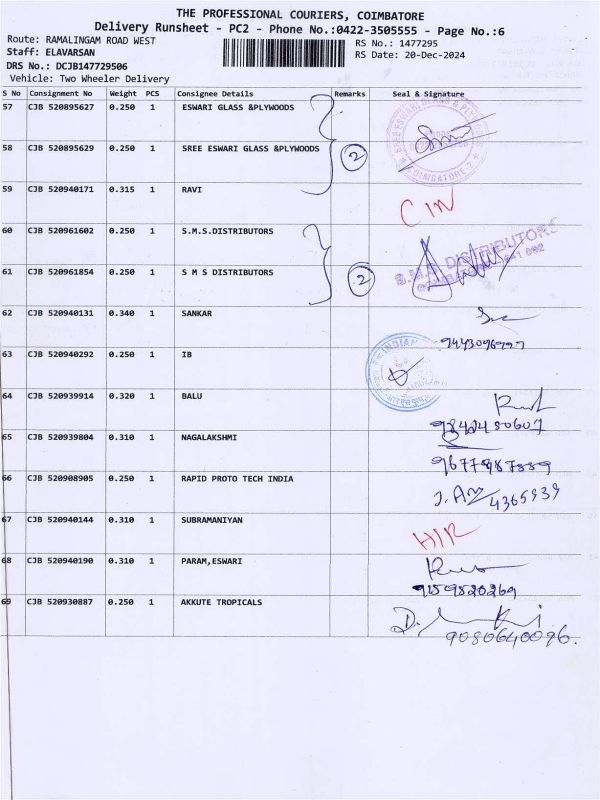 THE PROFESSIONAL COURIERS, COIMBATORE
Delivery Runsheet - PC2 - Phone No.:0422-3505555 - Page No.:6
Route: RAMALINGAM ROAD WEST
RS No.: 1477295
Staff: ELAVARSAN
RS Date: 20-Dec-2024
DRS No.: DCJB147729506
Vehicle: Two Wheeler Delivery
S No Consignment No Weight PCS Consignee Details Remarks Seal & Signature
57 CJB 520895627 0.250 1 ESWARI GLASS &PLYWOODS
58 CJB 520895629 0.250 1 SREE ESWARI GLASS &PLYWOODS 2
COIMBATORE-2
59 CJB 520940171 0.315 1 RAVI
60 CJB 520961602 0.250 1 S.M.S.DISTRIBUTORS
S.M.S. DISTRIBUTORS
61 CJB 520961854 0.250 1 S M S DISTRIBUTORS 2
62 CJB 520940131 0.340 1 SANKAR
63 CJB 520940292 0.250 1 IB
INDIAN
64 CJB 520939914 0.320 1 BALU
9842480607
65 CJB 520939804 0.310 1 NAGALAKSHMI
66 CJB 520908905 0.250 1 RAPID PROTO TECH INDIA
4365939
67 CJB 520940144 0.310 1 SUBRAMANIYAN
68 CJB 520940190 0.310 1 PARAM,ESWARI
9159820269
69 CJB 520930887 0.250 1 AKKUTE TROPICALS
9080640096.